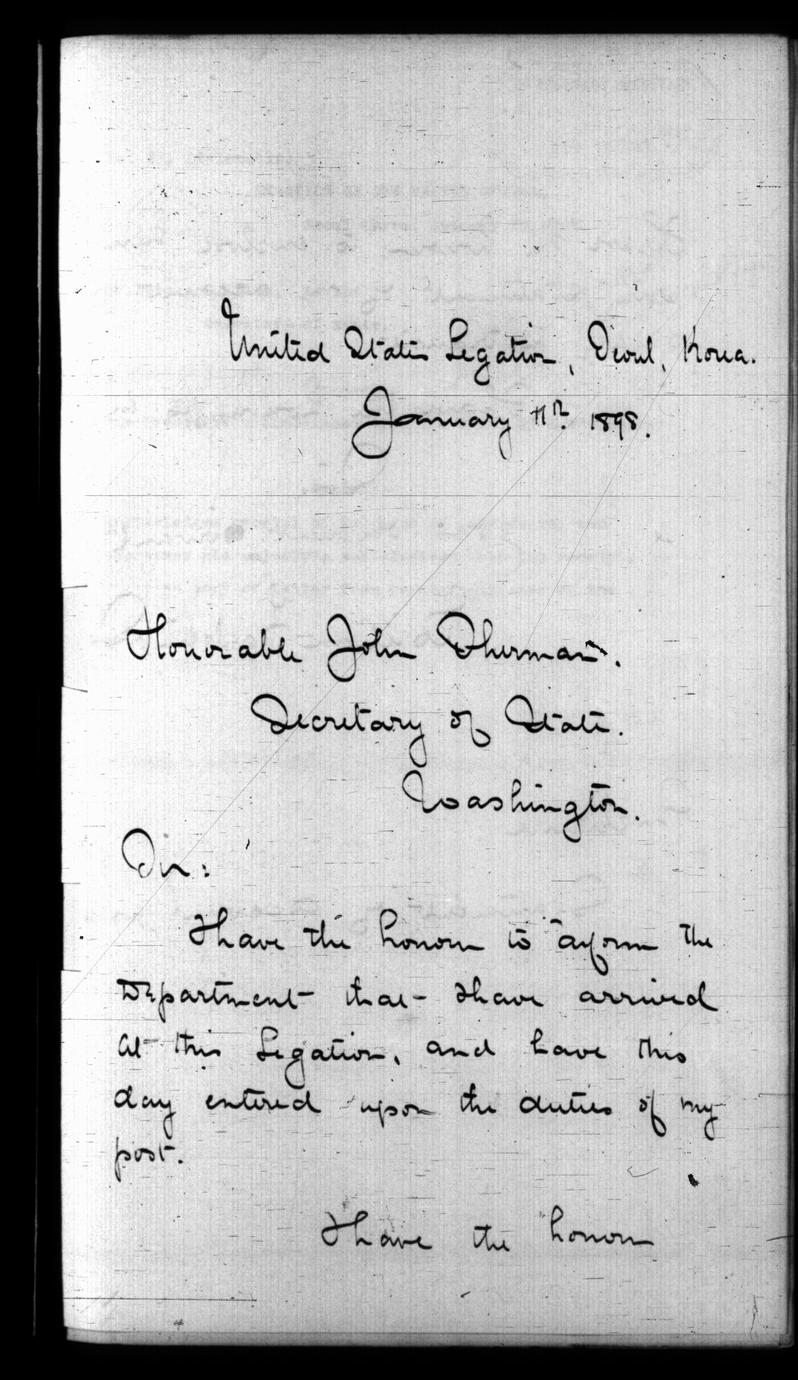 United States Legation, Seoul, Korea.
January 11th 1898.
Honorable John Sherman.
Secretary of State.
Washington.
Sir:
I have the honor to inform the
Department that I have arrived
at this Legation, and have this
day entered upon the duties of my
post.
I have the honor